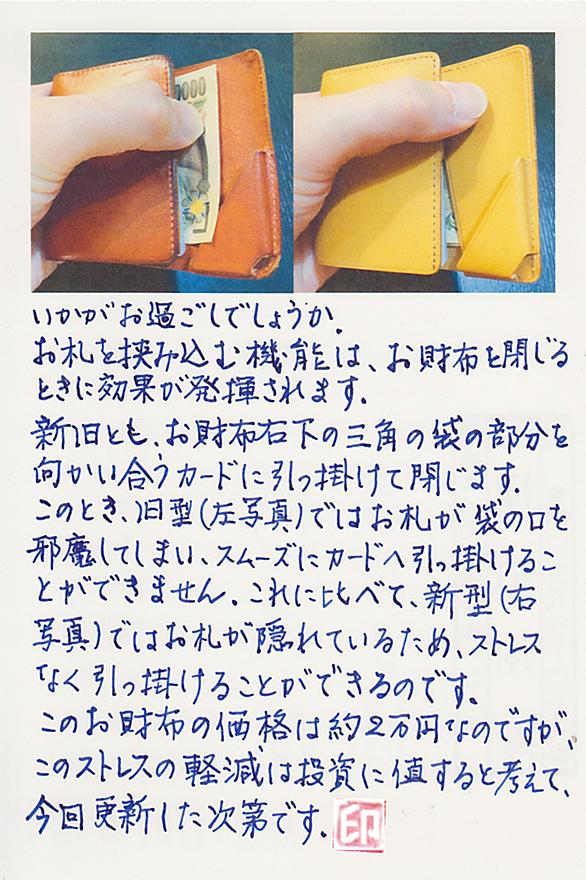 0000
いかがお過ごしでしょうか。
お札を挟み込む機能は、お財布を閉じる
ときに効果が発揮されます。
新旧とも、お財布右下の三角の袋の部分を
向かい合うカードに引っ掛けて閉じます。
このとき、旧型(左写真)ではお札が袋の口を
邪魔してしまい、スムーズにカードへ引っ掛けるこ
とができません。これに比べて、新型(右
写真)ではお札が隠れているため、ストレス
なく引っ掛けることができるのです。
このお財布の価格は約2万円なのですが、
このストレスの軽減は投資に値すると考えて、
今回更新した次第です。
印